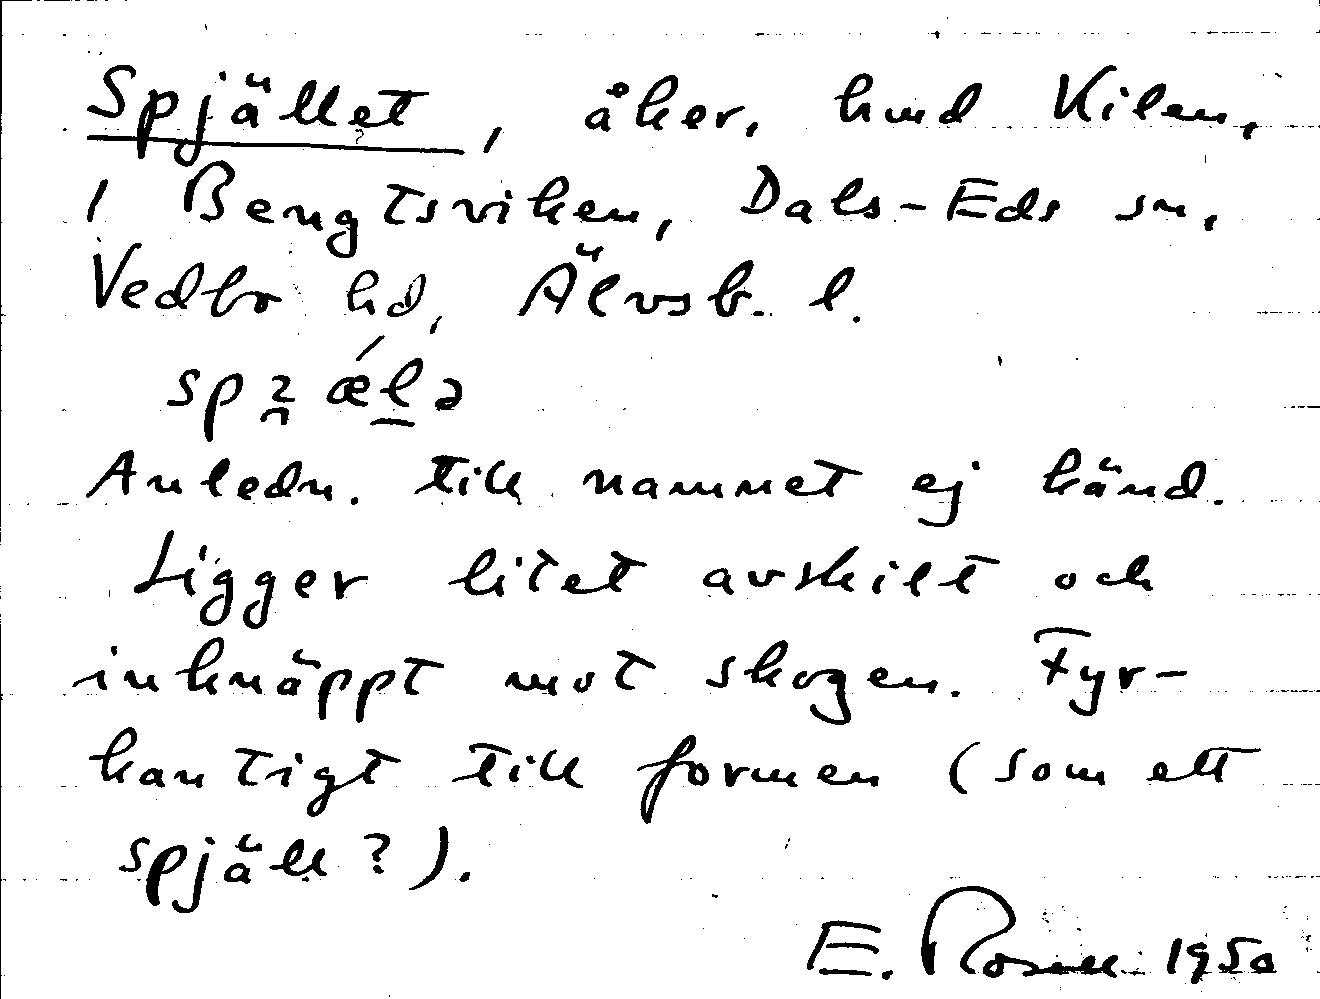 Spjället, åker, hmd Kilen,
1 Bengtsviken, Dals-Eds sn,
Vedbo hd, Älvsb. l.
Anledn. till namnet ej känd.
Ligger litet avskilt och
inknäppt mot skogen. Fyr-
kantigt till formen (som ett
spjäll?).
E. Rosell 1950